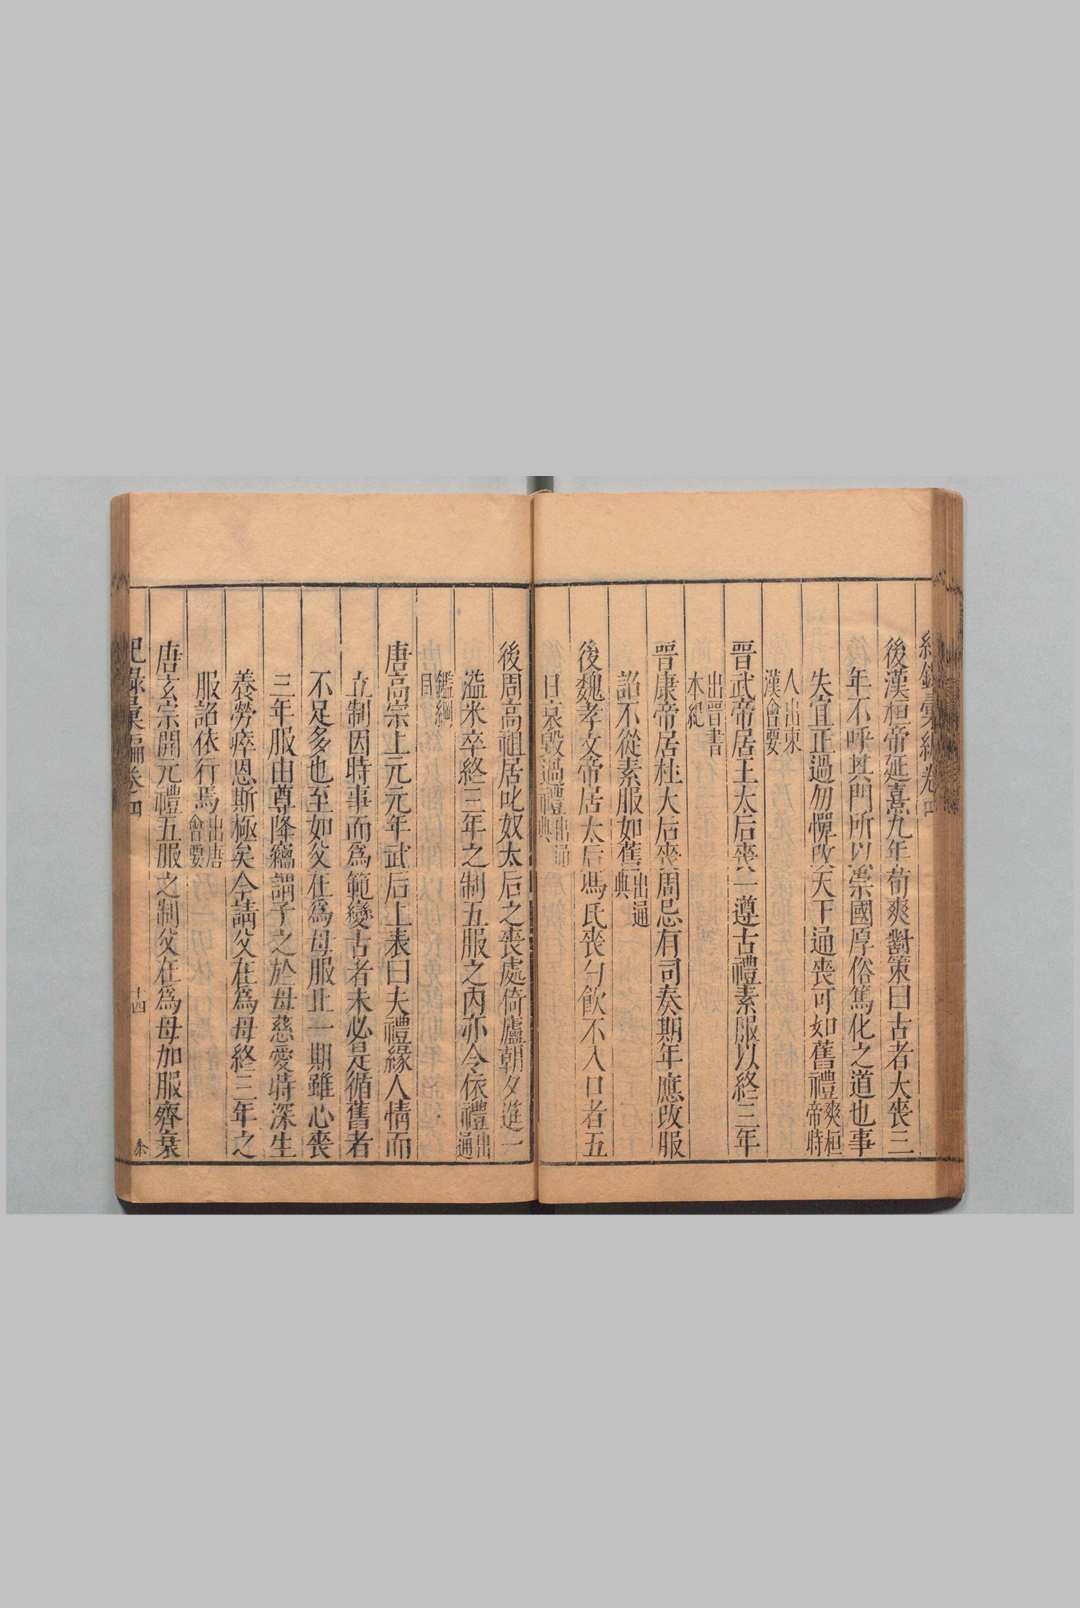 紀錄彙編卷四
後漢桓帝延熹九年荀爽對策曰古者大喪三
年不呼其門所以崇國厚俗篤化之道也事
失宜正過勿憚改天下通喪可如舊禮爽桓帝時
人出東漢會要
晉武帝居王太后喪一遵古禮素服以終三年
出晉書本紀
晉康帝居杜太后喪周忌有司奏期年應改服
詔不從素服如舊出通典
後魏孝文帝居太后馮氏喪勺飲不入口者五
日哀毀過禮出通典
後周高祖居叱奴太后之喪處倚廬朝夕進一
溢米卒終三年之制五服之內亦令依禮出通
鑑綱目
唐高宗上元元年武后上表曰夫禮緣人情而
立制因時事而為範變古者未必是循舊者
不足多也至如父在為母服止一期雖心喪
三年服由尊降竊謂子之於母慈愛特深生
養勞瘁恩斯極矣今請父在為母終三年之
服詔依行焉出唐會要
唐玄宗開元禮五服之制父在為母加服齊衰
紀錄彙編卷四
十四